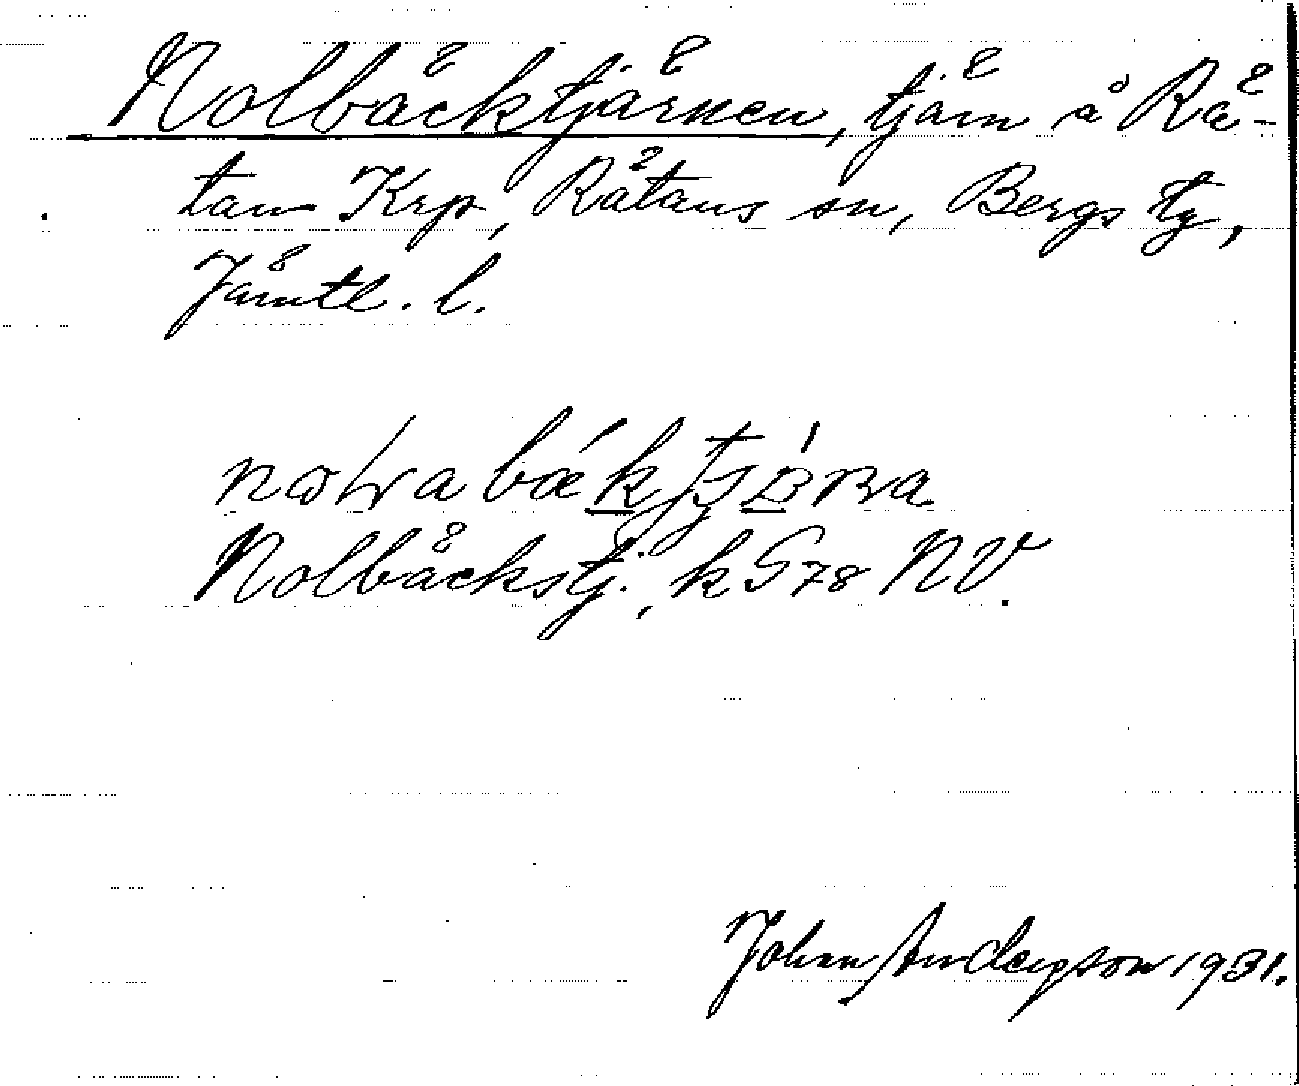 Nolbäcktjärnen, tjärn å Rä-
tan Krp, Rätans sn, Bergs tg,
Jämtl. l.
Nolbäckstj., k S 78 NV.
John Anderson 1931.